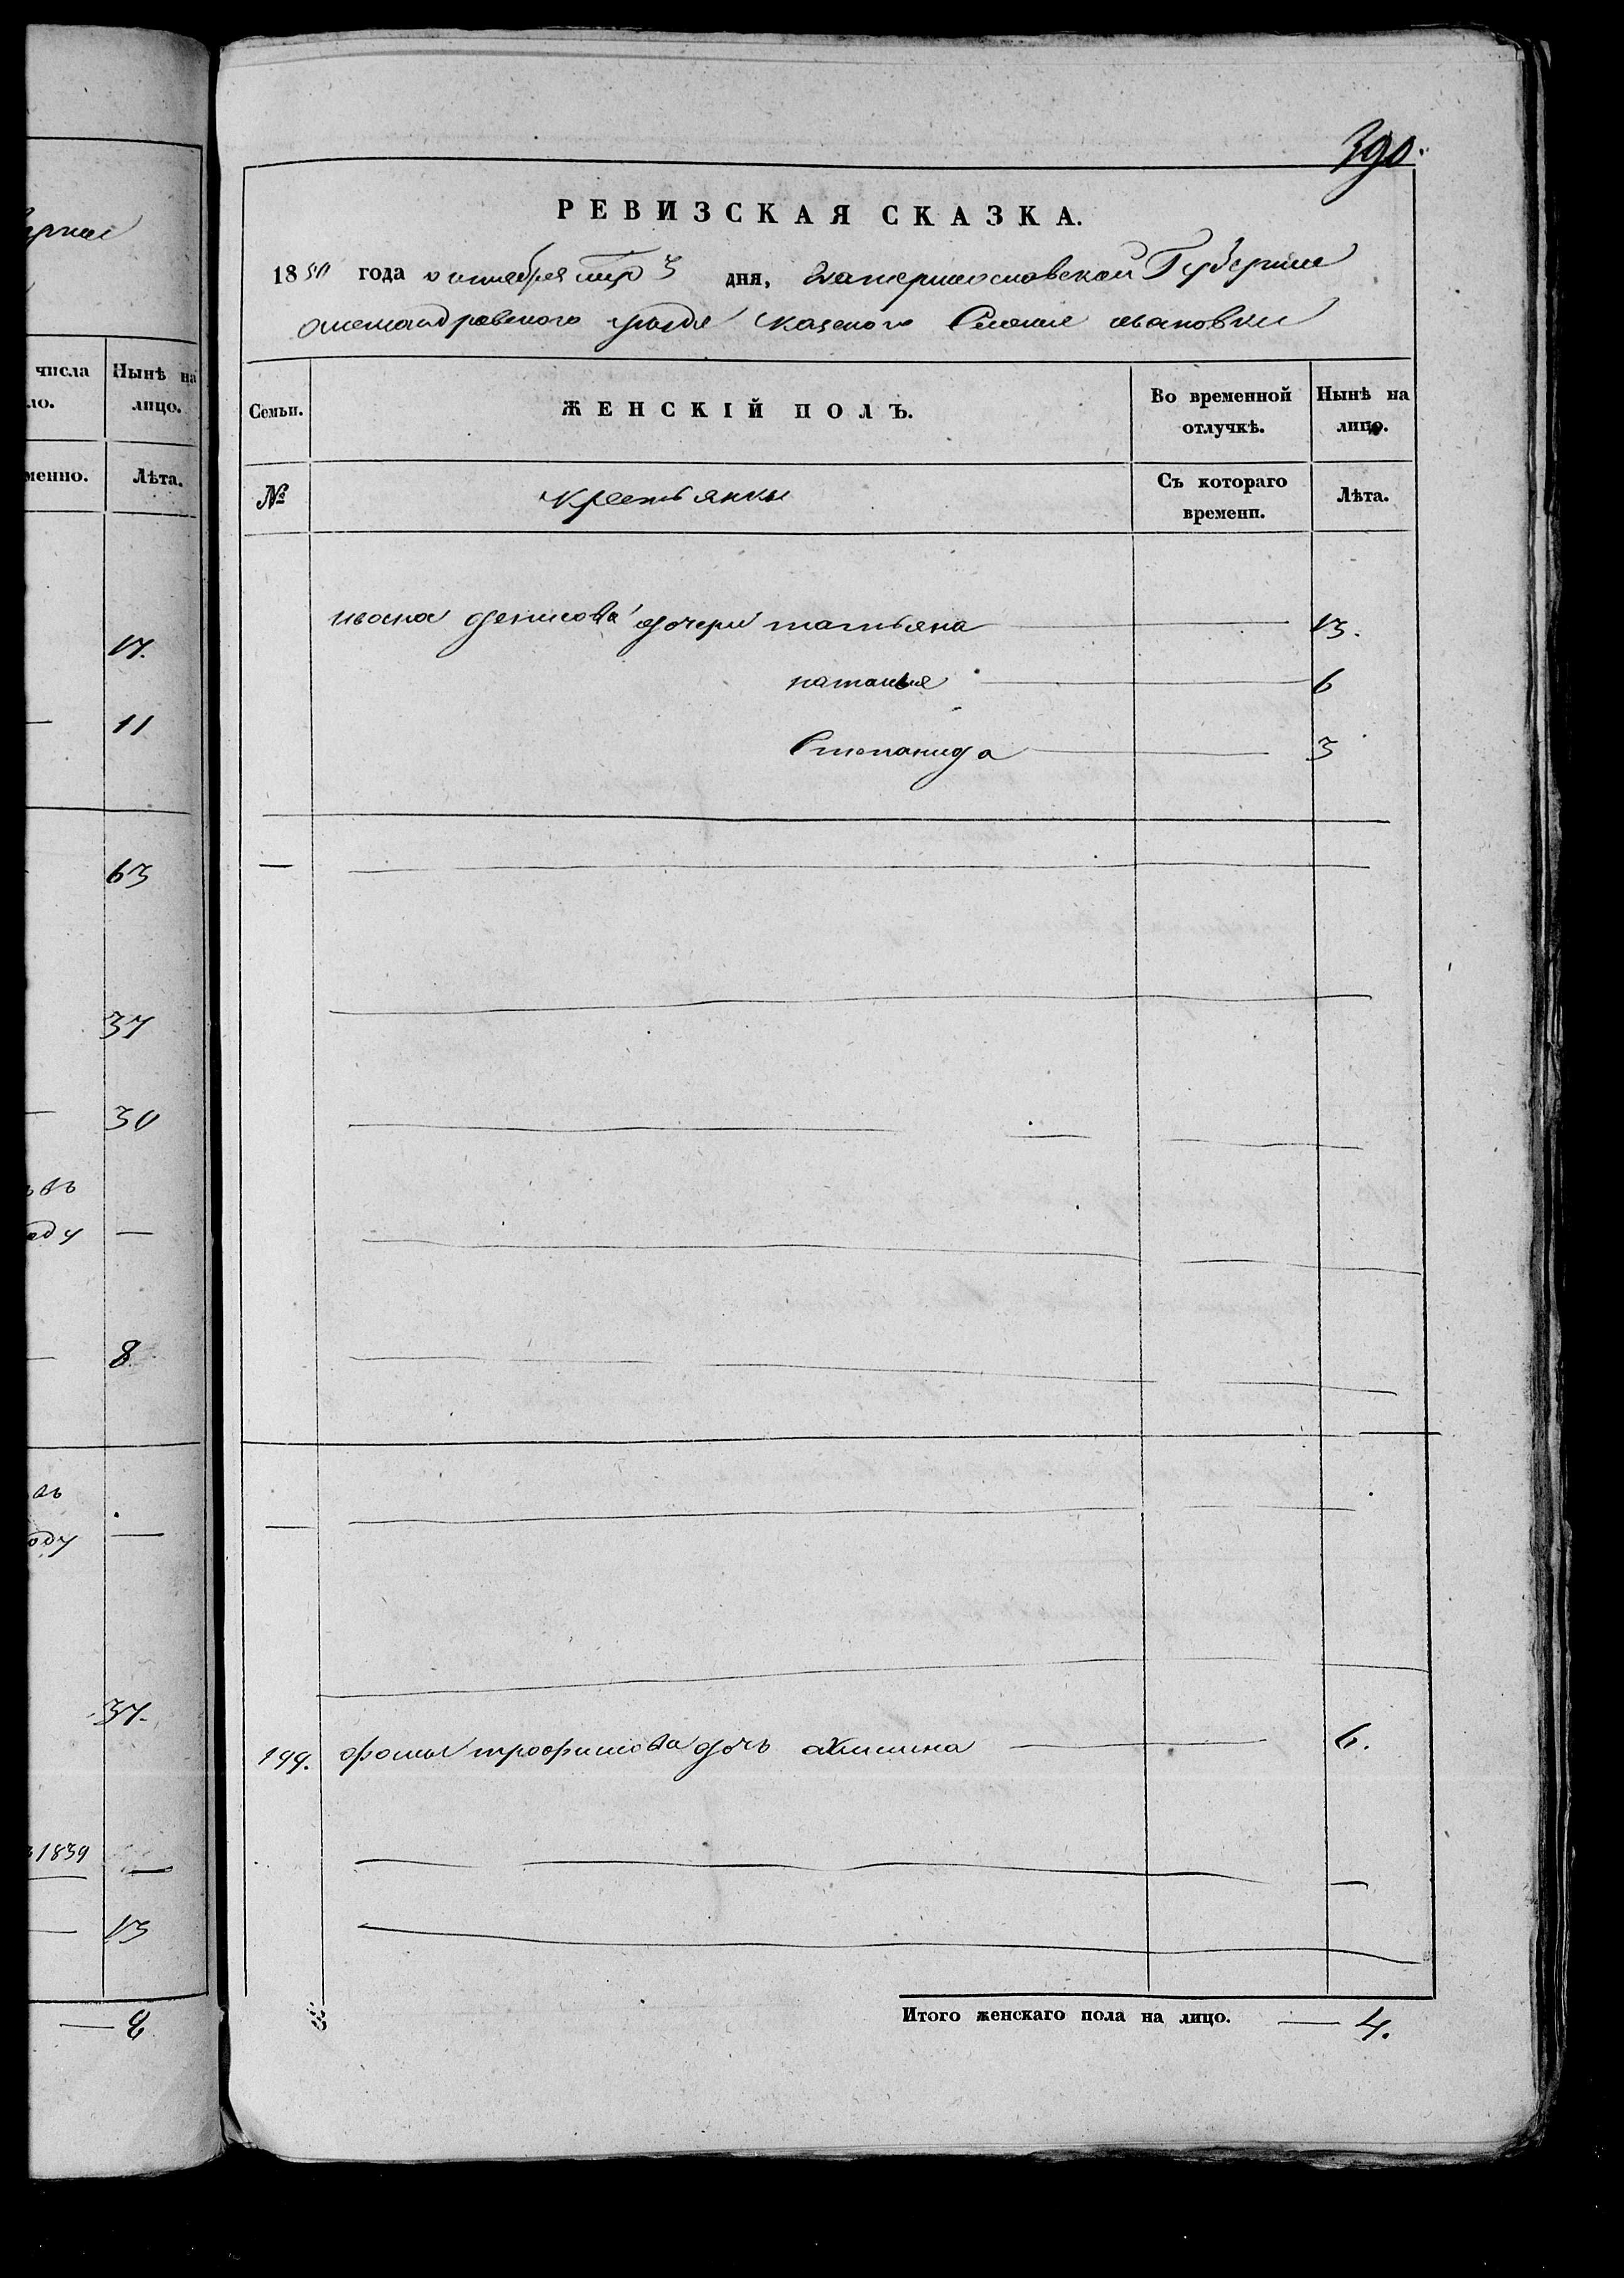 рнии
числа
ло.
Нынѣ на
лицо.
менно.
Лѣта.
17.
11
63
37
30
въ
оду —
8
въ
оду —
37.
1839 —
13
— 8
390.
РЕВИЗСКАЯ СКАЗКА.
1850 года октября 3 дня, Екатеринославской Губернии
александровского уезда казеного Селения ивановки
Семьи.
ЖЕНСКІЙ ПОЛЪ.
Во временной
отлучкѣ.
Нынѣ на
лицо.
№
Крестьянки
Съ котораго
времени.
Лѣта.
ивана денисова дочери татьяна — 13.
наталья — 6
Степанида — 3
199. фомы трофимова дочь акилина — 6.
Итого женскаго пола на лицо. — 4.